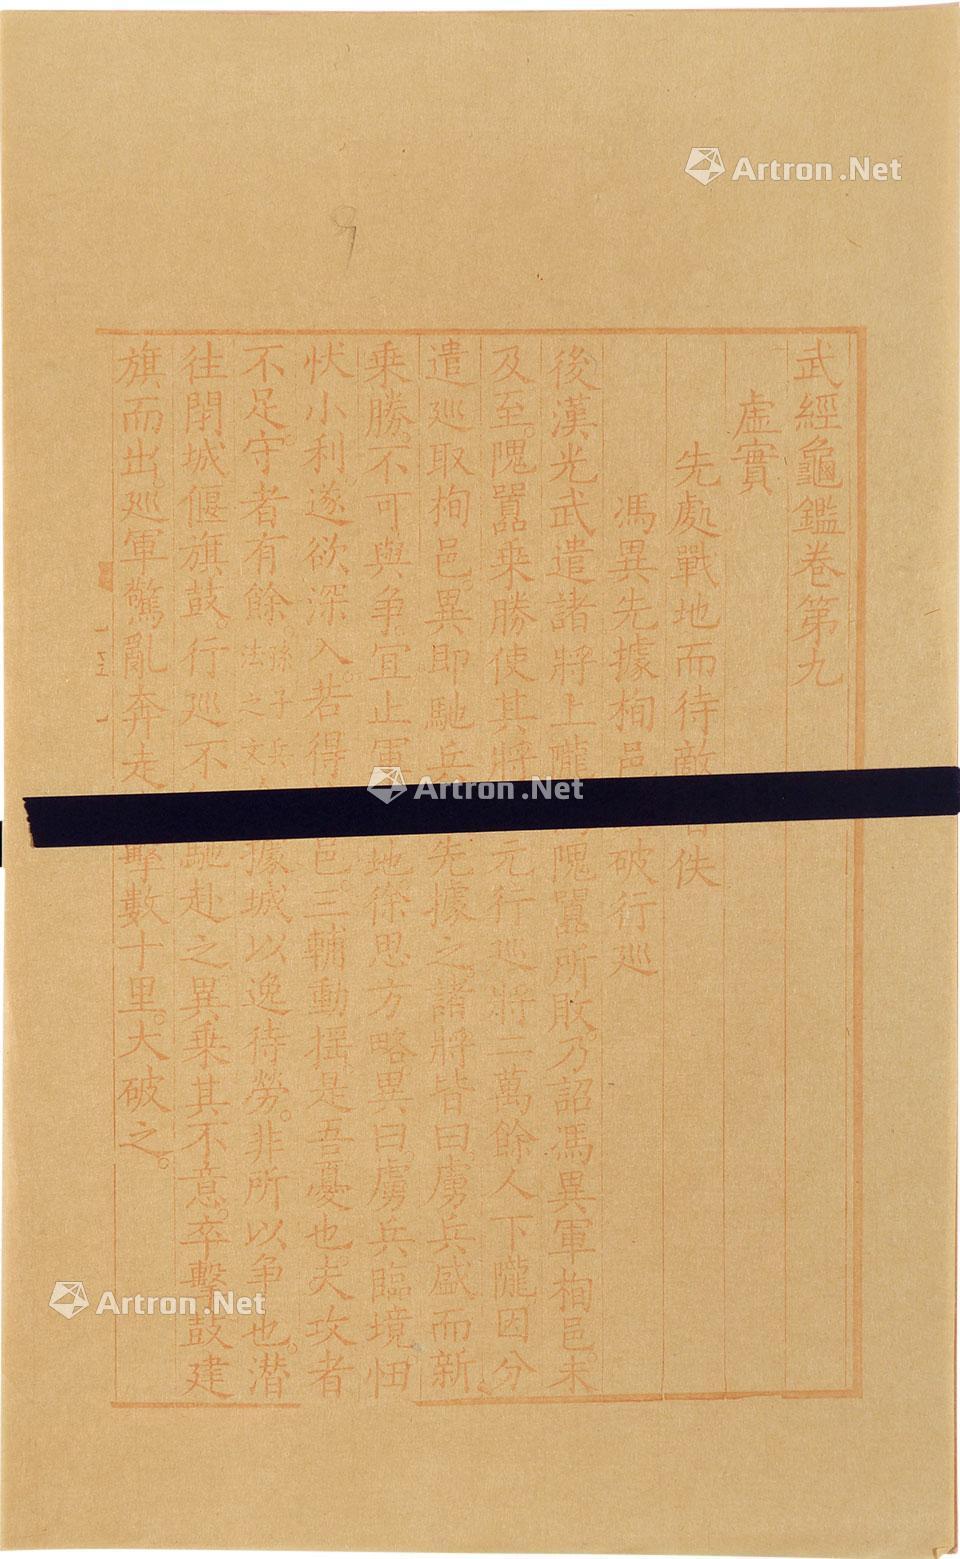 武經龜鑑卷第九
虛實
先處戰地而待敵者佚
馮異先據栒邑破行巡
後漢光武遣諸將上隴隗囂所敗。乃詔馮異軍栒邑。未
及至。隗囂乗勝使其將元行巡將二萬餘人下隴因分
遣巡取栒邑。異即馳兵先據之。諸將皆曰。虜兵盛而新
乗勝。不可與争。宜止軍地徐思方略。異曰。虜兵臨境。忸
伏小利。遂欲深入。若得邑。三輔動揺。是吾憂也。夫攻者
不足。守者有餘。孫子兵法之文據城以逸待勞。非所以争也。潜
往閉城偃旗鼓。行巡不馳赴之。異乗其不意。卒擊鼓建
旗而出。巡軍驚亂奔走擊數十里。大破之。
Artron.Net
Artron.Net
Artron.Net